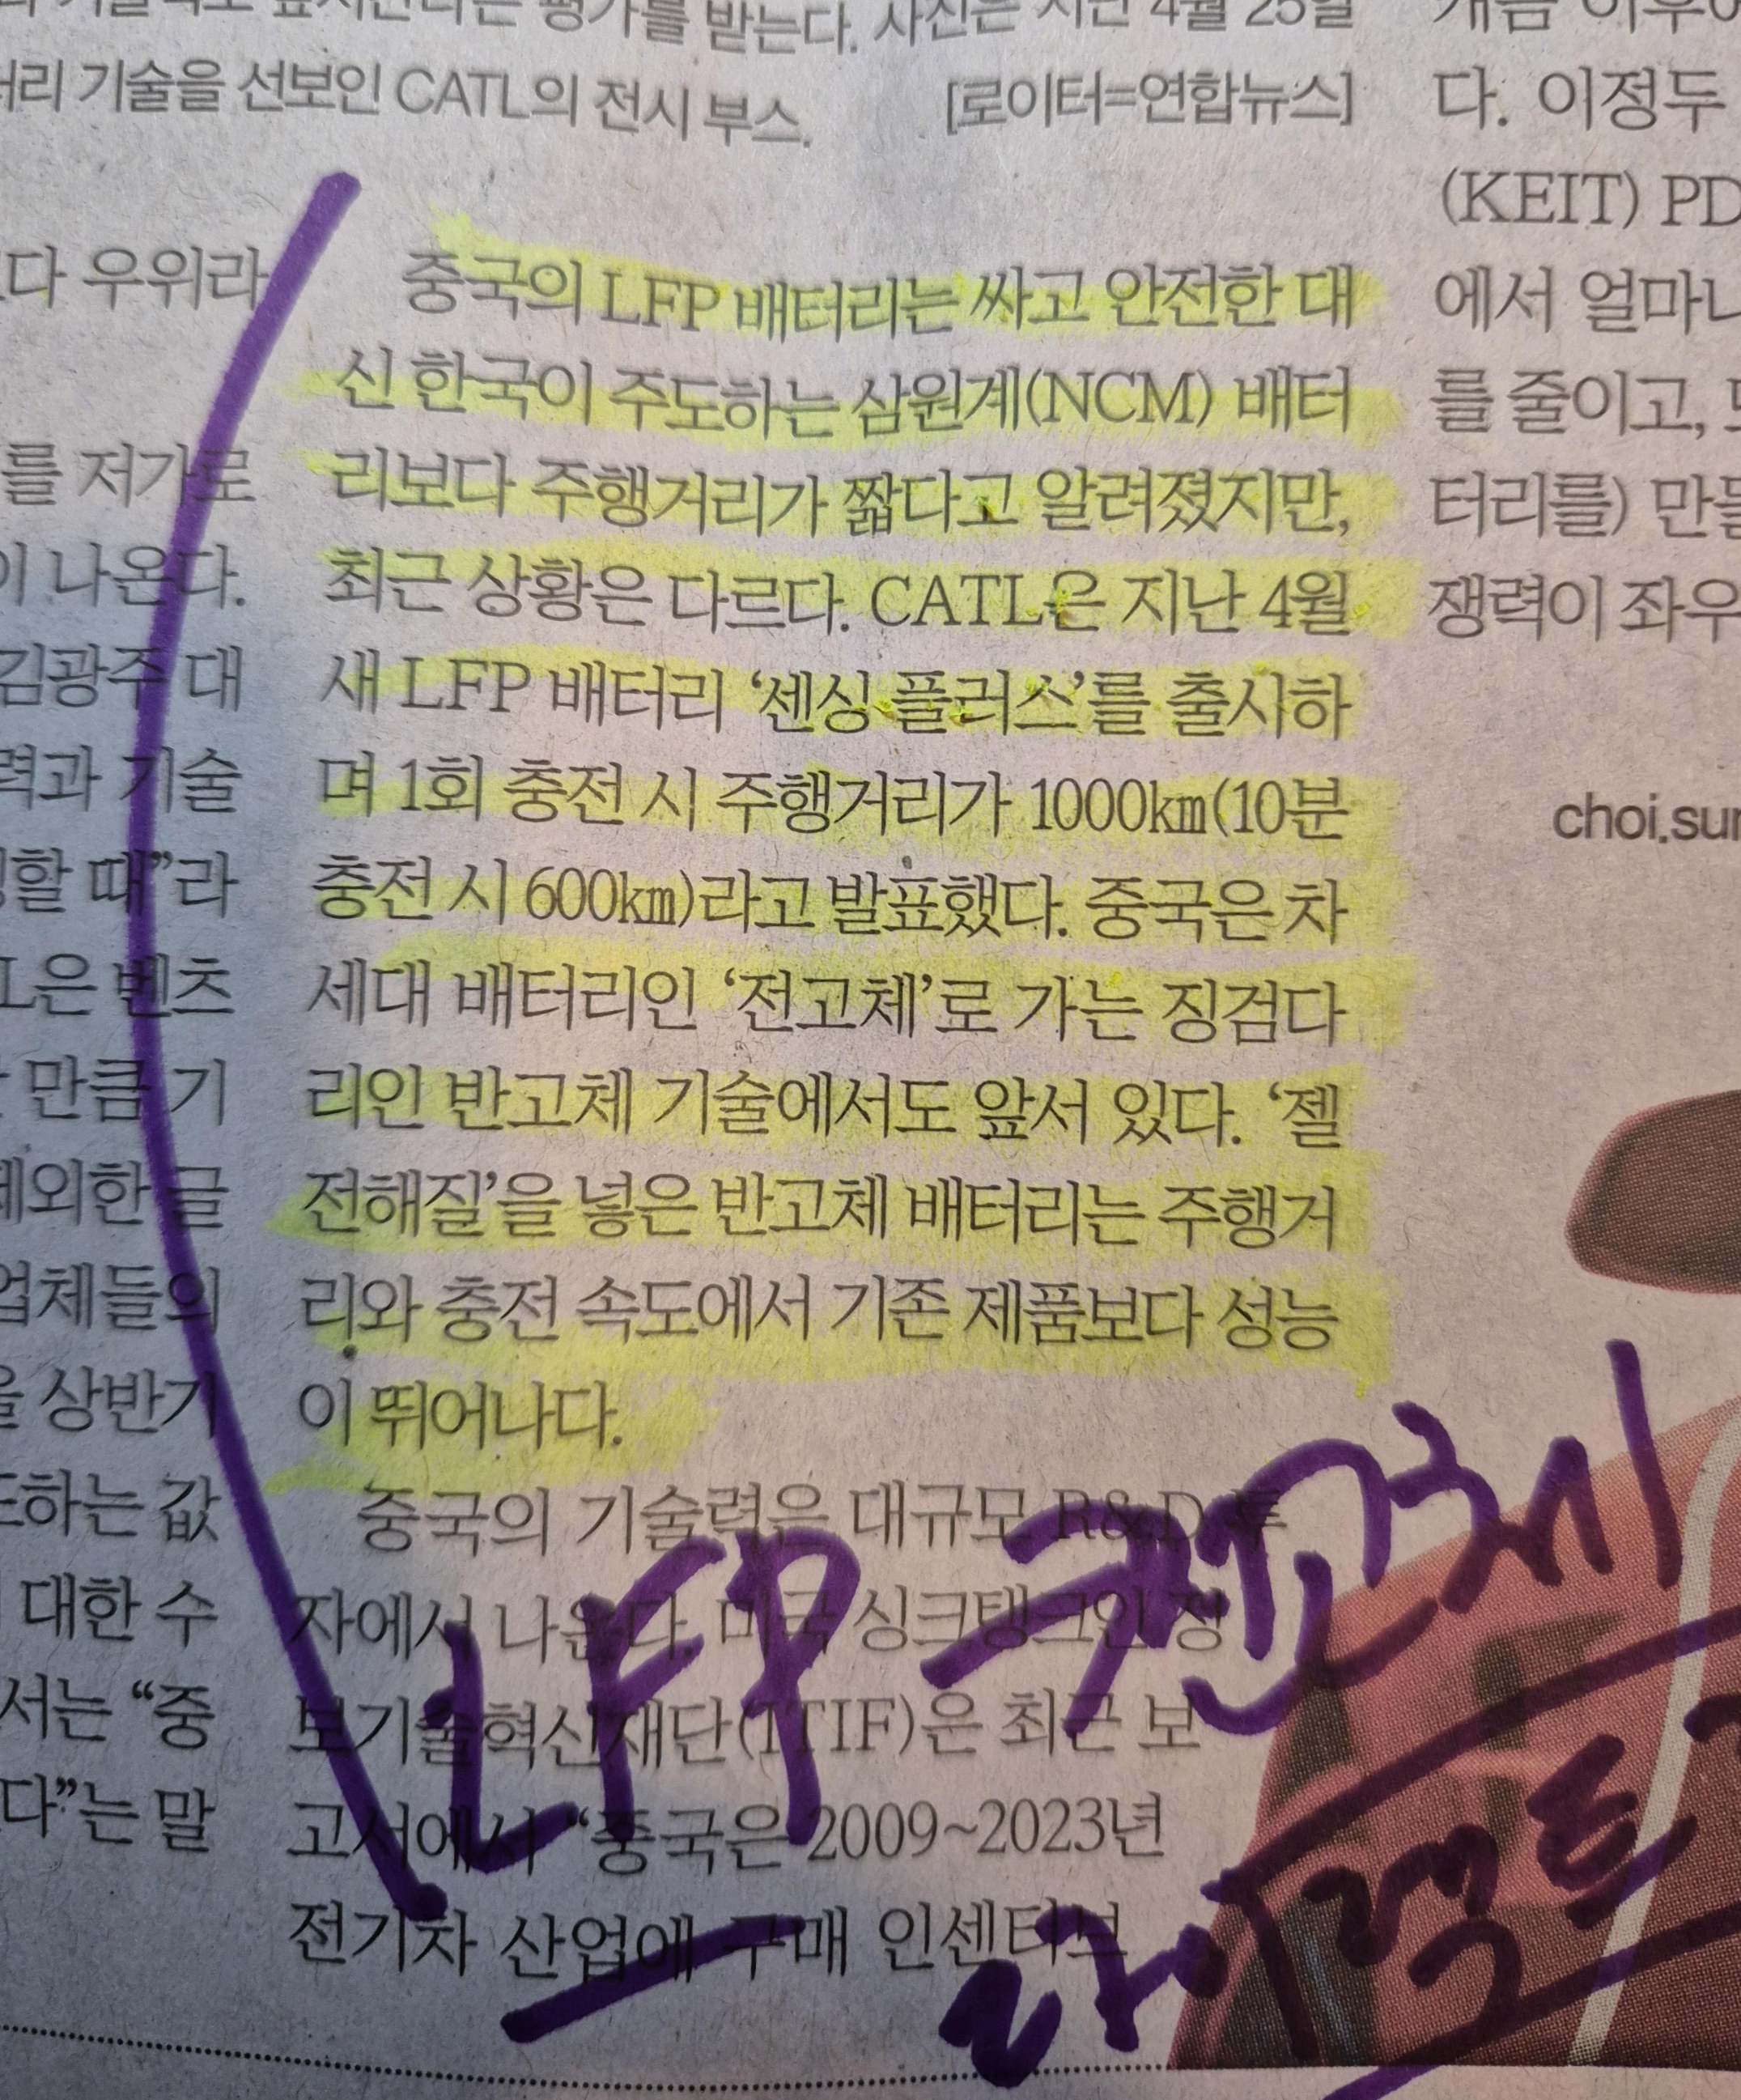 평가를 받는다. 사진은 지난 4월 25일
기술을 선보인 CATL의 전시 부스. [로이터=연합뉴스]
우위라
를 저가로
나온다.
김광주 대
기술
때”라
벤츠
만큼 기
글
업체들의
상반기
값
대한 수
“중
말
중국의 LFP 배터리는 싸고 안전한 대
신 한국이 주도하는 삼원계(NCM) 배터
리보다 주행거리가 짧다고 알려졌지만,
최근 상황은 다르다. CATL은 지난 4월
새 LFP 배터리 ‘센싱 플러스’를 출시하
며 1회 충전 시 주행거리가 1000㎞(10분
충전 시 600㎞)라고 발표했다. 중국은 차
세대 배터리인 ‘전고체’로 가는 징검다
리인 반고체 기술에서도 앞서 있다. ‘젤
전해질’을 넣은 반고체 배터리는 주행거
리와 충전 속도에서 기존 제품보다 성능
이 뛰어나다.
중국의 기술력은 대규모 R&D 투
자에서 나온다. 미국 싱크탱크인 정
보기술혁신재단(ITIF)은 최근 보
고서에서 “중국은 2009~2023년
전기차 산업에 구매 인센티브
다. 이정두
(KEIT) PD
에서
를 줄이고,
터리를)
쟁력이
LFP 전고체